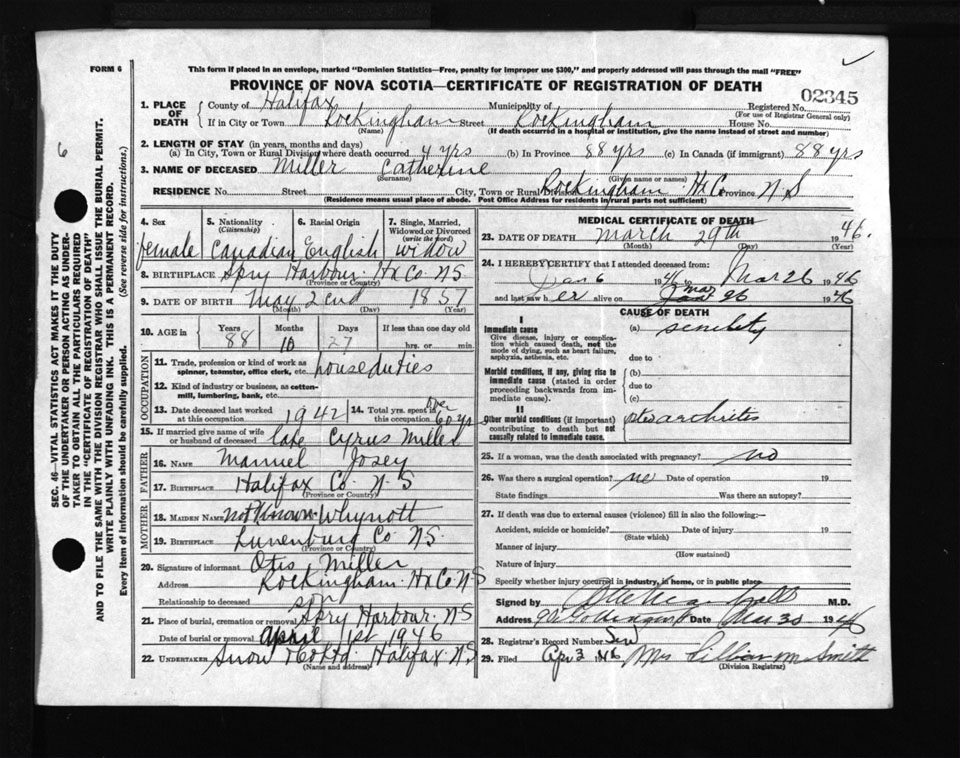 FORM 6
This form if placed in an envelope, marked "Dominion Statistics—Free, penalty for improper use $300," and properly addressed will pass through the mail "FREE"
PROVINCE OF NOVA SCOTIA—CERTIFICATE OF REGISTRATION OF DEATH
1. PLACE OF DEATH
County of Halifax Municipality of Registered No. 02345
(For use of Registrar General only)
If in City or Town Rockingham Street Rockingham House No.
(Name) (If death occurred in a hospital or institution, give the name instead of street and number)
2. LENGTH OF STAY (in years, months and days)
(a) In City, Town or Rural Division where death occurred 4 yrs (b) In Province 88 yrs (c) In Canada (if immigrant) 88 yrs
3. NAME OF DECEASED Miller Catherine
(Surname) (Given name or names)
RESIDENCE No. Street City, Town or Rural Division Rockingham Hx Co Province N S
(Residence means usual place of abode. Post Office Address for residents in rural parts not sufficient)
4. Sex female
5. Nationality (Citizenship) Canadian
6. Racial Origin English
7. Single, Married, Widowed or Divorced (write the word) widow
8. BIRTHPLACE Spry Harbour Hx Co NS
(Province or Country)
9. DATE OF BIRTH May 2end 1857
(Month) (Day) (Year)
10. AGE in Years 88 Months 10 Days 27 If less than one day old hrs. or min.
OCCUPATION
11. Trade, profession or kind of work as spinner, teamster, office clerk, etc. house duties
12. Kind of industry or business, as cotton-mill, lumbering, bank, etc.
13. Date deceased last worked at this occupation 1942
14. Total yrs. spent in this occupation over 60 yrs
15. If married give name of wife or husband of deceased late Cyrus Miller
FATHER
16. NAME Manuel Josey
17. BIRTHPLACE Halifax Co. N S
(Province or Country)
MOTHER
18. MAIDEN NAME not known Whynott
19. BIRTHPLACE Lunenburg Co NS.
(Province or Country)
20. Signature of informant Otis Miller
Address Rockingham Hx Co N S
Relationship to deceased son
21. Place of burial, cremation or removal Spry Harbour. NS
Date of burial or removal April 1st 1946
22. UNDERTAKER Snow & Co Ltd Halifax. NS
(Name and address)
MEDICAL CERTIFICATE OF DEATH
23. DATE OF DEATH March 29th 1946.
(Month) (Day) (Year)
24. I HEREBY CERTIFY that I attended deceased from:
Jan 6 1946 to Mar 26 1946
and last saw her alive on Mar 26 1946
CAUSE OF DEATH
I
Immediate cause
Give disease, injury or complication which caused death, not the mode of dying, such as heart failure, asphyxia, asthenia, etc.
(a) senility
due to
Morbid conditions, if any, giving rise to immediate cause (stated in order proceeding backwards from immediate cause).
(b)
due to
(c)
II
Other morbid conditions (if important) contributing to death but not causally related to immediate cause.
25. If a woman, was the death associated with pregnancy? no
26. Was there a surgical operation? no Date of operation 19
State findings Was there an autopsy?
27. If death was due to external causes (violence) fill in also the following:—
Accident, suicide or homicide? Date of injury 19
(State which)
Manner of injury
(How sustained)
Nature of injury
Specify whether injury occurred in industry, in home, or in public place
Signed by M.D.
Address Date Mar 30 1946
28. Registrar's Record Number
29. Filed Apr 3 1946 Mrs Lillian M Smith
(Division Registrar)
SEC. 46—VITAL STATISTICS ACT MAKES IT THE DUTY
OF THE UNDERTAKER OR PERSON ACTING AS UNDER-
TAKER TO OBTAIN ALL THE PARTICULARS REQUIRED
IN THE "CERTIFICATE OF REGISTRATION OF DEATH"
AND TO FILE THE SAME WITH THE DIVISION REGISTRAR WHO SHALL ISSUE THE BURIAL PERMIT.
WRITE PLAINLY WITH UNFADING INK. THIS IS A PERMANENT RECORD.
Every item of information should be carefully supplied. (See reverse side for instructions.)
6